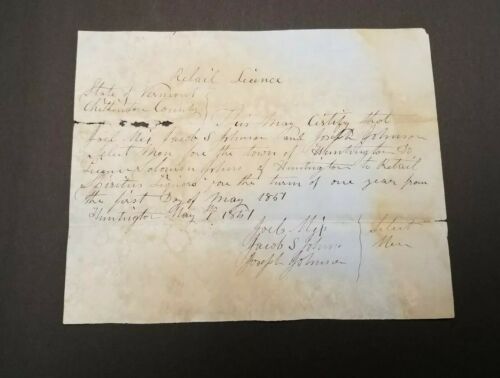 Retail Licence
State of Vermont
Chittenden County
This May Certify that
Joel Mix Jacob S Johnson and Joseph Johnson
Select Men for the town of Huntington Do
Licence Solomon Johns of Huntington to Retail
Spiritus Liquors for the term of one year from
the first Day of May 1861
Huntington May 1861
Joel Mix
Jacob S Johns
Joseph Johnson
Select
Men